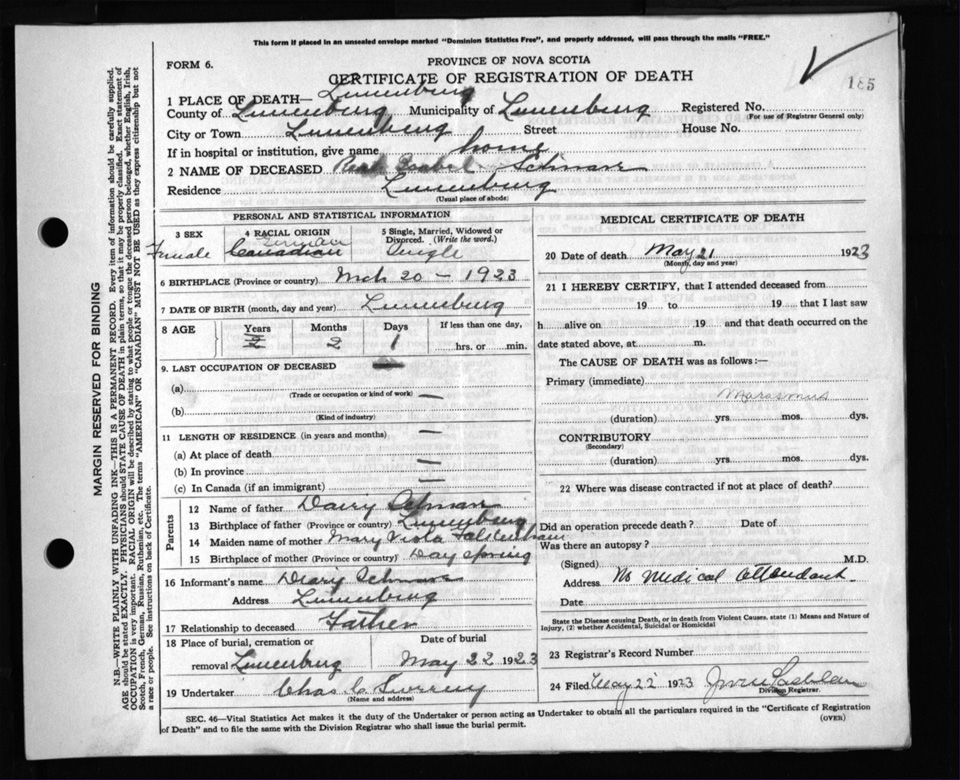 This form if placed in an unsealed envelope marked "Dominion Statistics Free", and properly addressed, will pass through the mails "FREE."
FORM 6.
PROVINCE OF NOVA SCOTIA
CERTIFICATE OF REGISTRATION OF DEATH
185
1 PLACE OF DEATH— Lunenburg
County of Lunenburg Municipality of Lunenburg Registered No.
(For use of Registrar General only)
City or Town Lunenburg Street House No.
If in hospital or institution, give name home
2 NAME OF DECEASED Isabel
Residence Lunenburg
(Usual place of abode)
MARGIN RESERVED FOR BINDING
N.B.—WRITE PLAINLY WITH UNFADING INK—THIS IS A PERMANENT RECORD. Every item of information should be carefully supplied.
AGE should be stated EXACTLY. PHYSICIANS should STATE CAUSE OF DEATH in plain terms, so that it may be properly classified. Exact statement of
OCCUPATION is very important. RACIAL ORIGIN will be described by stating to what people or tongue the deceased person belonged, whether English, Irish,
Scotch, French, German, Russian, Ruthenian, etc. The terms "AMERICAN" OR "CANADIAN" MUST NOT BE USED as they express citizenship but not
a race or people. See instructions on back of Certificate.
PERSONAL AND STATISTICAL INFORMATION
3 SEX
Female
4 RACIAL ORIGIN
German
Canadian
5 Single, Married, Widowed or
Divorced. (Write the word.)
Single
6 BIRTHPLACE (Province or country) Mch 20 - 1923
7 DATE OF BIRTH (month, day and year) Lunenburg
8 AGE Years Months Days If less than one day,
2 2 1 hrs. or min.
9. LAST OCCUPATION OF DECEASED
(a) —
(Trade or occupation or kind of work)
(b)
(Kind of industry)
11 LENGTH OF RESIDENCE (in years and months) —
(a) At place of death
(b) In province —
(c) In Canada (if an immigrant) —
Parents
12 Name of father
13 Birthplace of father (Province or country) Lunenburg
14 Maiden name of mother Mary Viola
15 Birthplace of mother (Province or country) Day Spring
16 Informant's name
Address Lunenburg
17 Relationship to deceased Father
18 Place of burial, cremation or
removal Lunenburg
Date of burial
May 22 1923
19 Undertaker Chas
(Name and address)
MEDICAL CERTIFICATE OF DEATH
20 Date of death May 21 1923
(Month, day and year)
21 I HEREBY CERTIFY, that I attended deceased from
19 to 19 that I last saw
h alive on 19 and that death occurred on the
date stated above, at m.
The CAUSE OF DEATH was as follows:—
Primary (immediate)
Marasmus
(duration) yrs. mos. dys.
CONTRIBUTORY
(Secondary)
(duration) yrs. mos. dys.
22 Where was disease contracted if not at place of death?
Did an operation precede death? Date of
Was there an autopsy?
(Signed) M.D.
Address No Medical Attendant
Date
State the Disease causing Death, or in death from Violent Causes, state (1) Means and Nature of
Injury, (2) whether Accidental, Suicidal or Homicidal
23 Registrar's Record Number
24 Filed May 22 1923
Division Registrar.
SEC. 46—Vital Statistics Act makes it the duty of the Undertaker or person acting as Undertaker to obtain all the particulars required in the "Certificate of Registration
of Death" and to file the same with the Division Registrar who shall issue the burial permit.
(OVER)